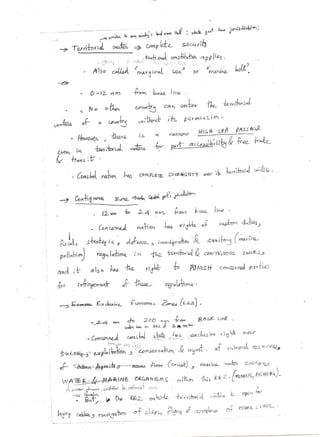 → Territorial waters ⇒ complete security
National constitution applies.
- Also called "marginal sea" or "marine belt".
- 0-12 nm from base line.
- No other country can enter the territorial
waters of a country without its permission.
- However, there is a narrow HIGH SEA PASSAGE
even in territorial waters for port accessibility & free trade
& transit.
- Coastal nation has COMPLETE SOVEREIGNTY over its territorial waters.
→ Contiguous zone
- 12 nm to 24 nm from base line.
- Concerned nation has rights of custom duties,
fiscal strategies, defence, conservation & sanitary (marine
pollution) regulations in the territorial & CONTIGUOUS zones,
and it also has the right to PUNISH concerned parties
for infringement of these regulations.
→ Exclusive Economic Zones (EEZ).
- 24 nm to 200 nm from BASE LINE.
- Concerned coastal state has exclusive right over
exploitation, conservation & mgmt. of natural resources
of floor (crust), marine water energy,
WATER & MARINE ORGANISMS within this EEZ.
- But, the EEZ outside territorial waters is open for
laying cables, navigation of ships of other